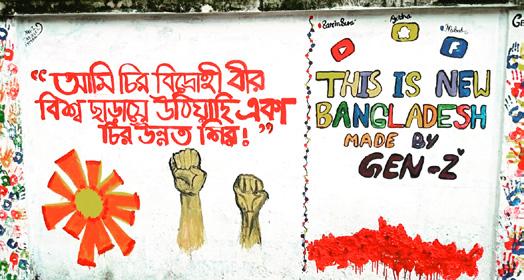 “আমি চির বিদ্রোহী বীর
বিশ্ব ছাড়ায়ে উঠিয়াছি একা
চির উন্নত শির! ”
THIS IS NEW
BANGLADESH
MADE BY
GEN-Z